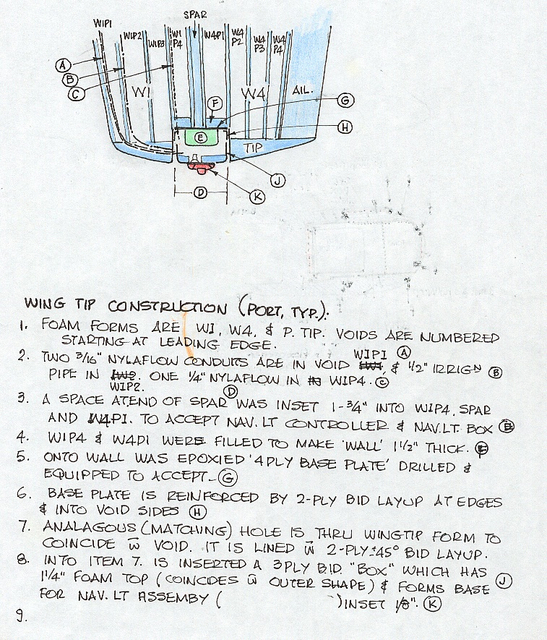 SPAR
WIP1
WIP2
WIP3
W1 P4
W4P1
W4 P2
W4 P3
W4 P4
A
B
C
W1
F
W4
AIL.
G
E
H
TIP
J
D
K
WING TIP CONSTRUCTION (PORT, TYP.).
1. FOAM FORMS ARE W1, W4, & P. TIP. VOIDS ARE NUMBERED
STARTING AT LEADING EDGE.
2. TWO 3/16" NYLAFLOW CONDUITS ARE IN VOID WIP1 (A) & 1/2" IRRIGN (B)
PIPE IN WIP2. ONE 1/4" NYLAFLOW IN WIP4. (C)
3. A SPACE AT END OF SPAR (D) WAS INSET 1-3/4" INTO WIP4, SPAR
AND W4P1. TO ACCEPT NAV. LT CONTROLLER & NAV. LT BOX (E)
4. WIP4 & W4D1 WERE FILLED TO MAKE 'WALL' 1 1/2" THICK. (F)
5. ONTO WALL WAS EPOXIED '4 PLY BASE PLATE' DRILLED &
EQUIPPED TO ACCEPT_ (G)
6. BASE PLATE IS REINFORCED BY 2-PLY BID LAYUP AT EDGES
& INTO VOID SIDES (H)
7. ANALAGOUS (MATCHING) HOLE IS THRU WINGTIP FORM TO
COINCIDE W VOID. IT IS LINED W 2-PLY ±45° BID LAYUP.
8. INTO ITEM 7. IS INSERTED A 3PLY BID "BOX" WHICH HAS
1 1/4" FOAM TOP (COINCIDES W OUTER SHAPE) & FORMS BASE (J)
FOR NAV. LT ASSEMBY ( ) INSET 1/8". (K)
9.